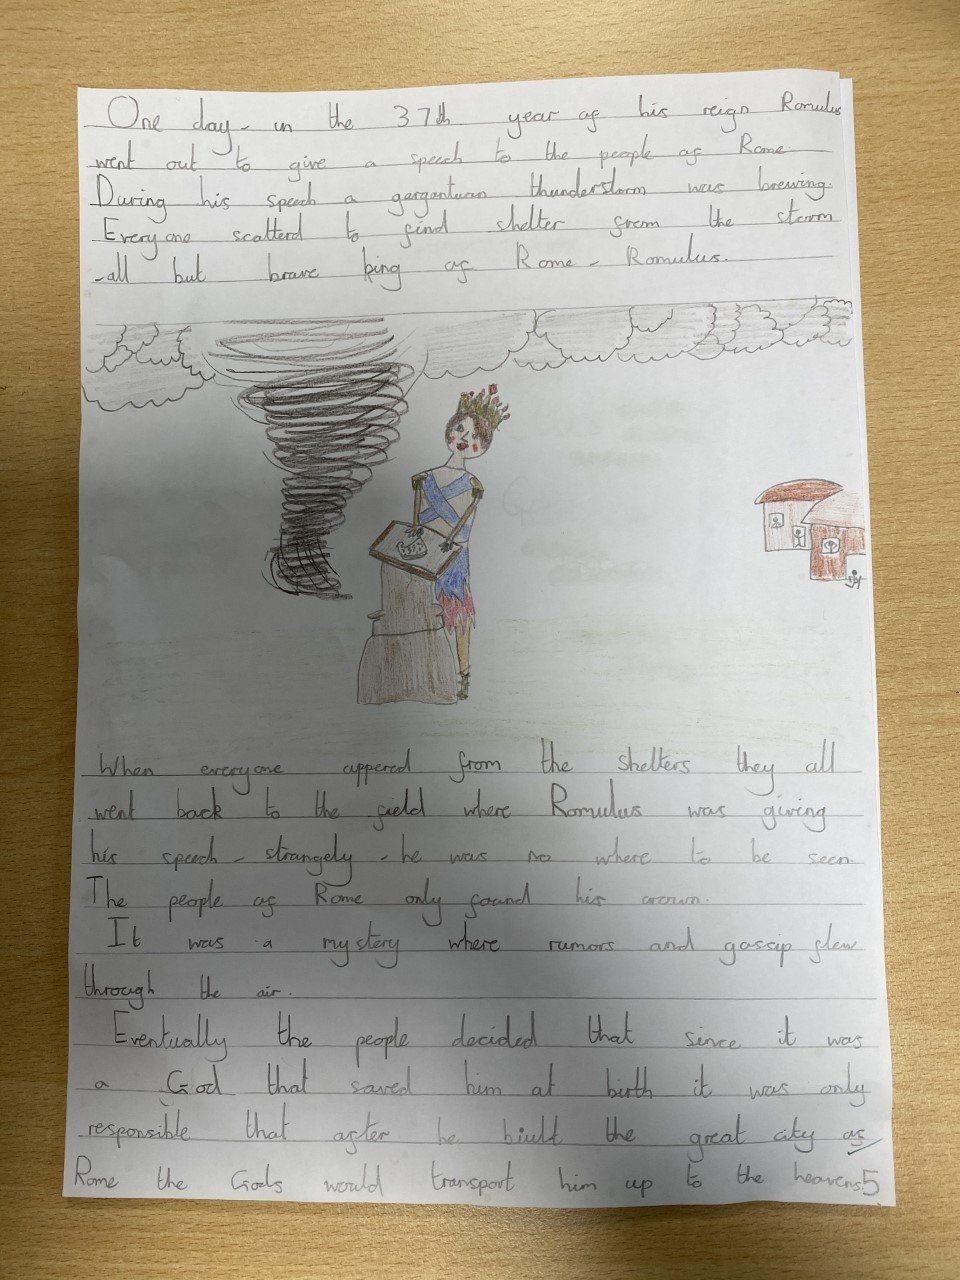 One day - in the 37th year of his reign Romulus
went out to give a speech to the people of Rome.
During his speech a gargantuan thunderstorm was brewing.
Everyone scatterd to find shelter from the storm
-all but brave king of Rome - Romulus.
When everyone appered from the shelters they all
went back to the field where Romulus was giving
his speech - strangely - he was no where to be seen.
The people of Rome only found his crown.
It was a mystery where rumors and gossip flew
through the air.
Eventually the people decided that since it was
a God that saved him at birth it was only
responsible that after he biult the great city of
Rome the Gods would transport him up to the heavens
5